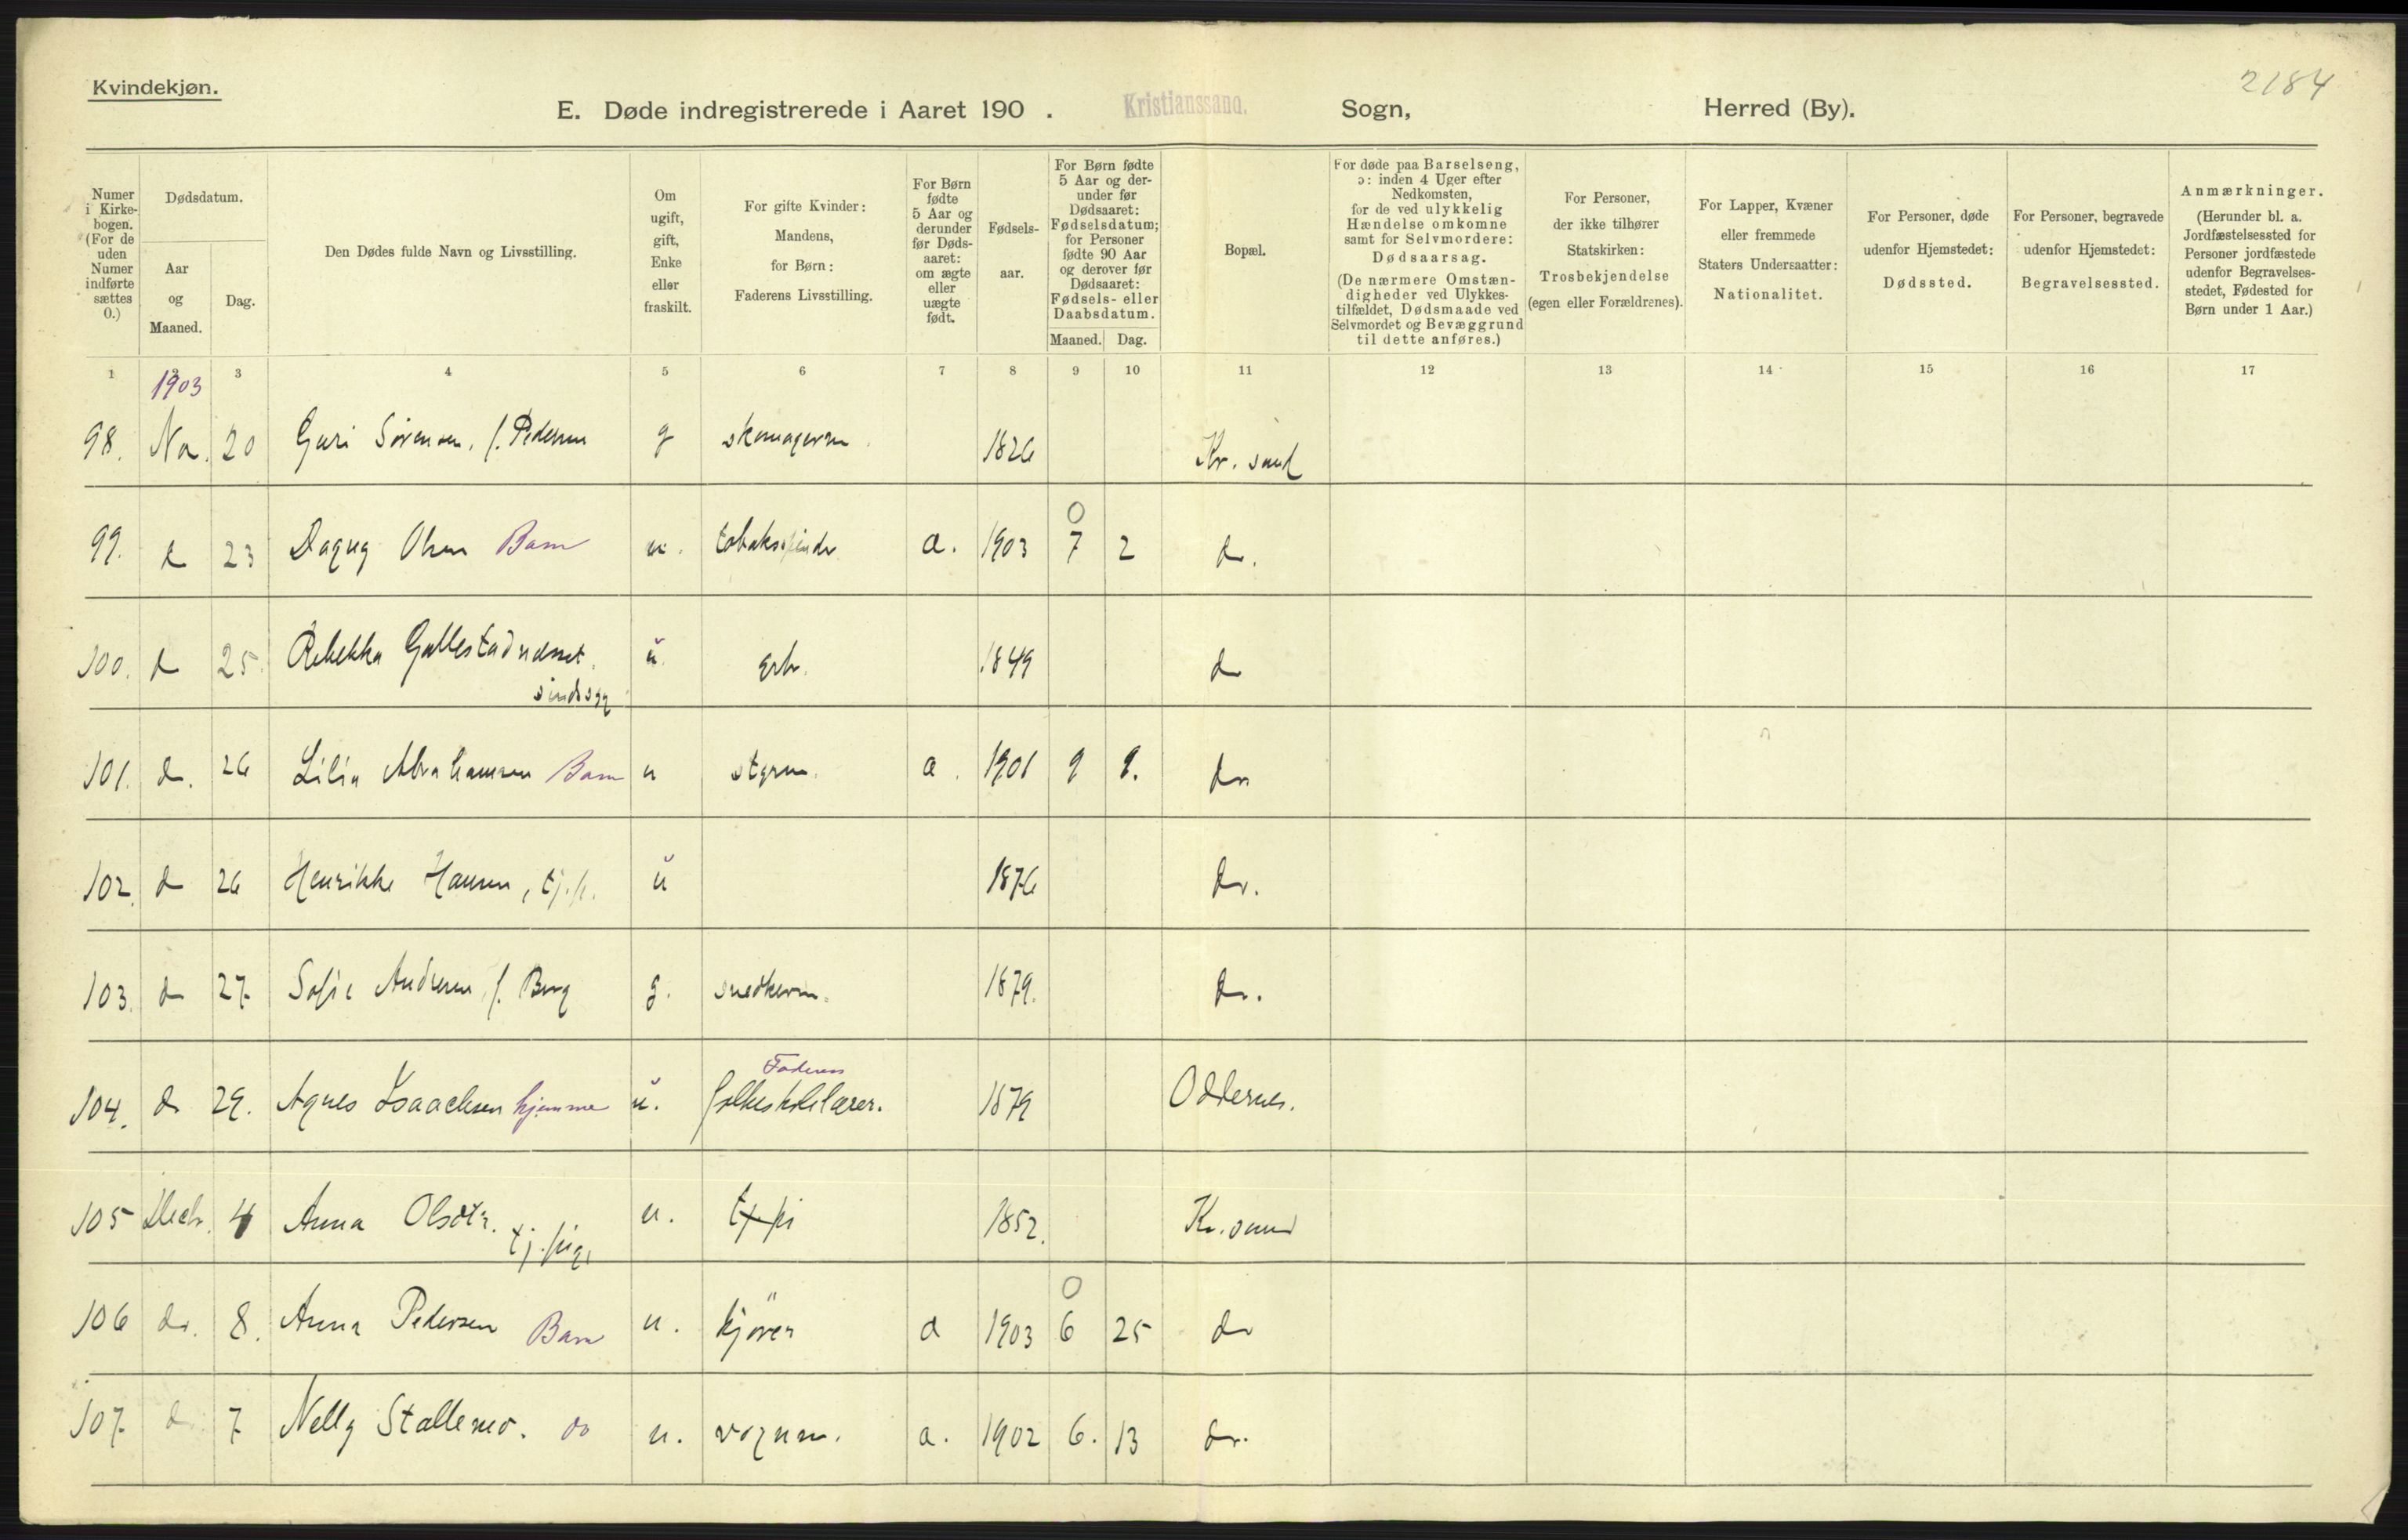 Kvindekjøn.
2184
E. Døde indregistrerede i Aaret 190 . Kristianssand. Sogn, Herred (By).
Numer i Kirkebogen. (For de uden Numer indførte sættes 0.)
Dødsdatum.
Aar og Maaned.
Dag.
Den Dødes fulde Navn og Livsstilling.
Om ugift, gift, Enke eller fraskilt.
For gifte Kvinder: Mandens, for Børn: Faderens Livsstilling.
For Børn fødte 5 Aar og derunder før Dødsaaret: om ægte eller uægte født.
Fødselsaar.
For Børn fødte 5 Aar og derunder før Dødsaaret: Fødselsdatum; for Personer fødte 90 Aar og derover før Dødsaaret: Fødsels- eller Daabsdatum.
Maaned. Dag.
Bopæl.
For døde paa Barselseng, ɔ: inden 4 Uger efter Nedkomsten, for de ved ulykkelig Hændelse omkomne samt for Selvmordere: Dødsaarsag. (De nærmere Omstændigheder ved Ulykkestilfældet, Dødsmaade ved Selvmordet og Bevæggrund til dette anføres.)
For Personer, der ikke tilhører Statskirken: Trosbekjendelse (egen eller Forældrenes).
For Lapper, Kvæner eller fremmede Staters Undersaatter: Nationalitet.
For Personer, døde udenfor Hjemstedet: Dødssted.
For Personer, begravede udenfor Hjemstedet: Begravelsessted.
Anmærkninger. (Herunder bl. a. Jordfæstelsessted for Personer jordfæstede udenfor Begravelsesstedet, Fødested for Børn under 1 Aar.)
1 2 3 4 5 6 7 8 9 10 11 12 13 14 15 16 17
1903
98. No. 20 Guri Sørensen, f. Pedersen g skomagerm. 1826 Kr. sand
0
99. d 23 Dagny Olsen Barn u. tobakspinder a. 1903 7 2 do.
100. d 25. Rebekka Gallestadnæsset. u. grbr. 1849 do
sindssyg
101. do. 26 Lilia Abrahamsen Barn u styrm. a. 1901 9 9. do
102. do 26 Henrikke Hansen, tj.p. u 1876 do.
103. do 27. Sofie Andresen f. Berg g. snedkerm. 1879. do.
Faderen
104. do 29. Agnes Isaachsen hjemme u. folkeskolelærer. 1879 Oddernes.
105 Decbr. 4 Anna Olsdtr. u. tj.pi 1852. Kr. sand
tj. pige
0
106 do. 8. Anna Pedersen Barn u. kjører a 1903 6 25 do
107. do 7 Nelly Stallemo. do u. vognm. a. 1902 6. 13 do.